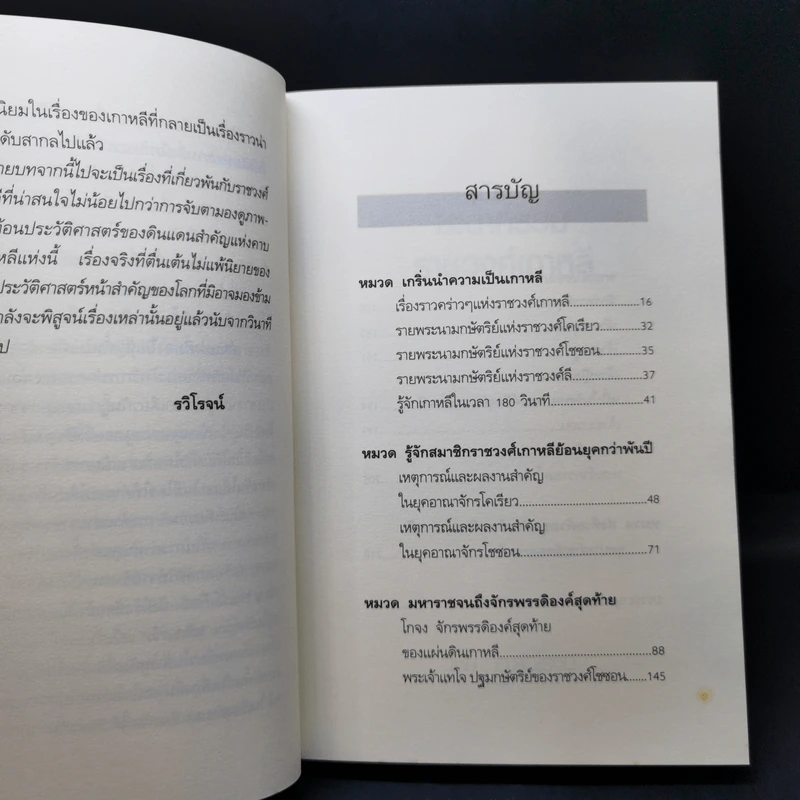 นิยมในเรื่องของเกาหลีที่กลายเป็นเรื่องราวน่า
ดับสากลไปแล้ว
ายบทจากนี้ไปจะเป็นเรื่องที่เกี่ยวพันกับราชวงศ์
ที่น่าสนใจไม่น้อยไปกว่าการจับตามองดูภาพ-
ท้อนประวัติศาสตร์ของดินแดนสำคัญแห่งคาบ
หลีแห่งนี้ เรื่องจริงที่ตื่นเต้นไม่แพ้นิยายของ
ประวัติศาสตร์หน้าสำคัญของโลกที่มิอาจมองข้าม
ำลังจะพิสูจน์เรื่องเหล่านั้นอยู่แล้วนับจากวินาที
ป
รวิโรจน์
สารบัญ
หมวด เกริ่นนำความเป็นเกาหลี
เรื่องราวคร่าวๆแห่งราชวงศ์เกาหลี......................16
รายพระนามกษัตริย์แห่งราชวงศ์โคเรียว.............32
รายพระนามกษัตริย์แห่งราชวงศ์โชซอน.............35
รายพระนามกษัตริย์แห่งราชวงศ์ลี......................37
รู้จักเกาหลีในเวลา 180 วินาที............................41
หมวด รู้จักสมาชิกราชวงศ์เกาหลีย้อนยุคกว่าพันปี
เหตุการณ์และผลงานสำคัญ
ในยุคอาณาจักรโคเรียว......................................48
เหตุการณ์และผลงานสำคัญ
ในยุคอาณาจักรโชซอน......................................71
หมวด มหาราชจนถึงจักรพรรดิองค์สุดท้าย
โกจง จักรพรรดิองค์สุดท้าย
ของแผ่นดินเกาหลี.............................................88
พระเจ้าแทโจ ปฐมกษัตริย์ของราชวงศ์โชซอน.......145